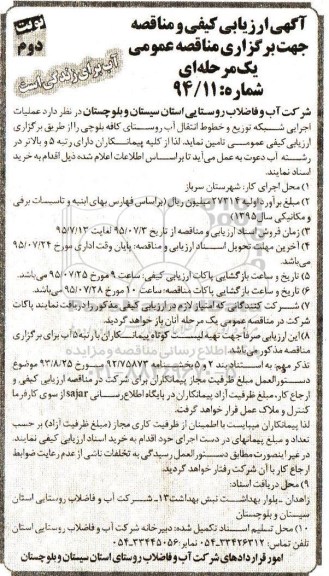 آگهی ارزیابی کیفی و مناقصه
جهت برگزاری مناقصه عمومی
یک مرحله‌ای
شماره: ۹۴/۱۱
نوبت
دوم
آب برای زندگی است
شرکت آب و فاضلاب روستایی استان سیستان و بلوچستان در نظر دارد عملیات
اجرایی شبکه توزیع و خطوط انتقال آب روستای کافه بلوچی را از طریق برگزاری
ارزیابی کیفی عمومی تامین نماید. لذا از کلیه پیمانکاران دارای رتبه ۵ و بالاتر در
رشته آب دعوت به عمل می‌آید تا براساس اطلاعات اعلام شده ذیل اقدام به خرید
اسناد نمایند.
۱) محل اجرای کار: شهرستان سرباز
۲) مبلغ برآورد اولیه میلیون ریال (براساس فهارس بهای ابنیه و تاسیسات برقی
و مکانیکی سال ۱۳۹۵)
۳) زمان فروش اسناد ارزیابی و مناقصه از تاریخ ۹۵/۰۷/۳ لغایت ۹۵/۷/۱۲
۴) آخرین مهلت تحویل اسناد ارزیابی و مناقصه: پایان وقت اداری مورخ ۹۵/۰۷/۲۴
می‌باشد.
۵) تاریخ و ساعت بازگشایی پاکات ارزیابی کیفی: ساعت ۹ مورخ ۹۵/۰۷/۲۵ می‌باشد.
۶) تاریخ و ساعت بازگشایی پاکات مناقصه: ساعت ۱۰ مورخ ۹۵/۰۷/۲۸ می‌باشد.
۷) شرکت کنندگانی که امتیاز لازم در ارزیابی کیفی مذکور را دریافت نمایند پاکات
شرکت در مناقصه عمومی یک مرحله آنان باز خواهد گردید.
۸) این ارزیابی صرفا جهت تهیه لیست کوتاه پیمانکاران با رتبه ۵ آب برای برگزاری
مناقصه مذکور می‌باشد.
تذکر مهم: به استناد بند بخشنامه مورخ ۹۳/۸/۲۵ موضوع
دستورالعمل مبلغ ظرفیت مجاز پیمانکاران برای شرکت در مناقصه ارزیابی کیفی و
ارجاع کار، مبلغ ظرفیت آزاد پیمانکاران در پایگاه اطلاع‌رسانی sajar از سوی کارفرما
کنترل و ملاک عمل قرار خواهد گرفت.
لذا پیمانکاران می‌بایست با اطمینان از ظرفیت کاری مجاز (مبلغ ظرفیت آزاد) بر حسب
تعداد و مبلغ پیمانهای در دست اجرای خود اقدام به خرید اسناد ارزیابی کیفی نمایند.
در غیر اینصورت مطابق دستورالعمل رسیدگی به تخلفات ناشی از عدم رعایت ضوابط
ارجاع کار با آن شرکت رفتار خواهد گردید.
۹) محل دریافت اسناد:
زاهدان ـ بلوار بهداشت نبش بهداشت ۱۳ـ شرکت آب و فاضلاب روستایی استان
سیستان و بلوچستان
۱۰) محل تسلیم اسناد تکمیل شده: دبیرخانه شرکت آب و فاضلاب روستایی استان
تلفن تماس: ۰۵۴-۳۳۴۲۶۳۱۲ نمابر: ۰۵۴-۳۳۴۴۵۰۵۶
امور قراردادهای شرکت آب و فاضلاب روستای استان سیستان و بلوچستان